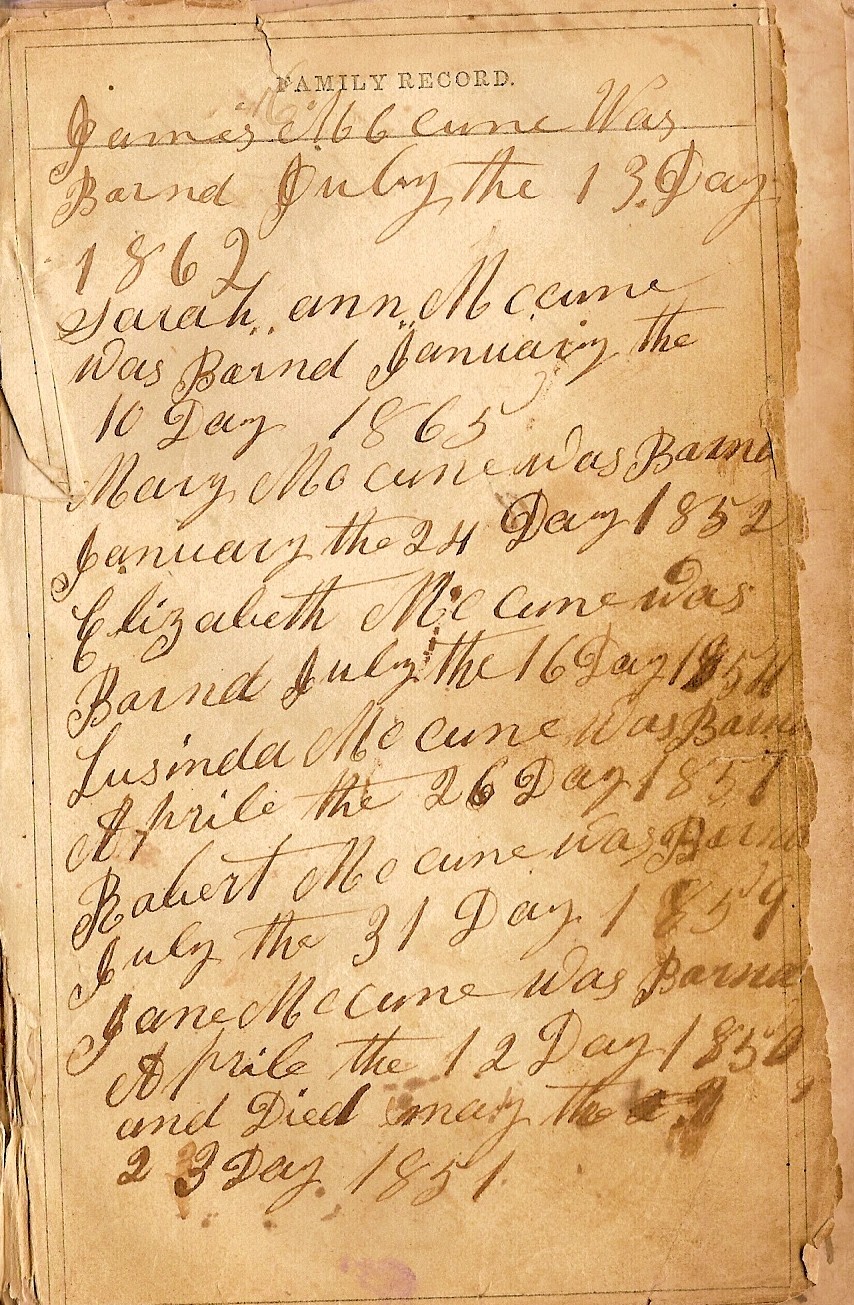 FAMILY RECORD.
James Mc Cune Was
Barnd July the 13 Day
1862
Sarah ann Mccune
was Barnd January the
10 Day 1865
Mary Mc cune was Barnd
January the 24 Day 1852
Elizabeth Mc Cune was
Barnd July the 16 Day 1854
Lusinda Mc cune was Barnd
Aprile the 26 Day 1857
Robert Mc cune was Barnd
July the 31 Day 1859
Jane Mccune was Barnd
Aprile the 12 Day 1850
and Died may the
23 Day 1851